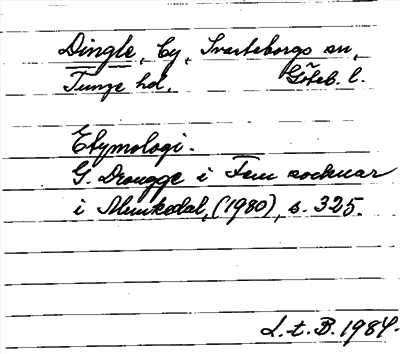 Dingle, by, Svarteborgs sn,
Tunge hd. Göteb. l.
Etymologi.
G. Drougge i Fem socknar
i Munkedal, (1980), s. 325.
L. t. B. 1984.